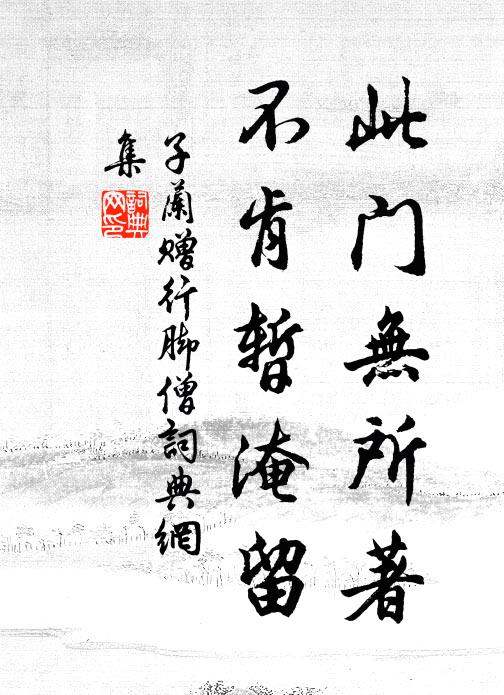 此门無所著
不肯暫淹留
子蘭贈行脚僧詞典網
集
詞典
网印